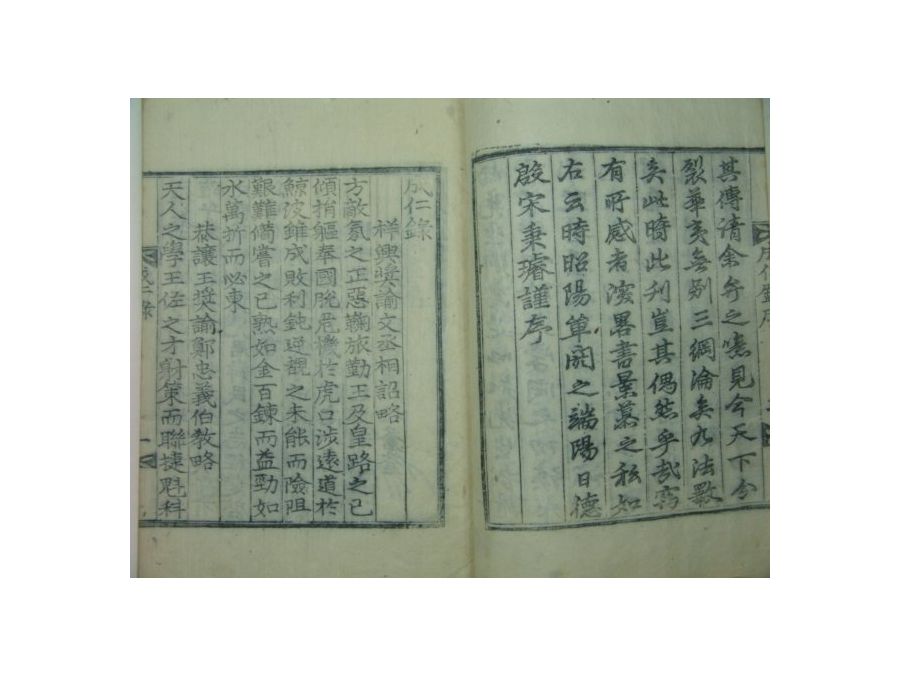 其傳清余弁之噫見今天下分
裂華夷無別三綱淪矣九法斁
矣此時此刊豈其偶然乎哉寫
有所感者深畧書景慕之私如
右云時昭陽單閼之端陽日德
殷宋秉璿謹序
成仁錄
祥興奬諭文丞相詔略
方敵氛之正惡鞠旅勤王及皇路之已
傾捐軀奉國脫危機於虎口涉遠道於
鯨波雖成敗利鈍逆觀之未能而險阻
艱難備嘗之已熟如金百鍊而益勁如
水萬折而必東
恭讓王奬諭鄭忠義伯敎略
天人之學王佐之才射策而聯捷魁科